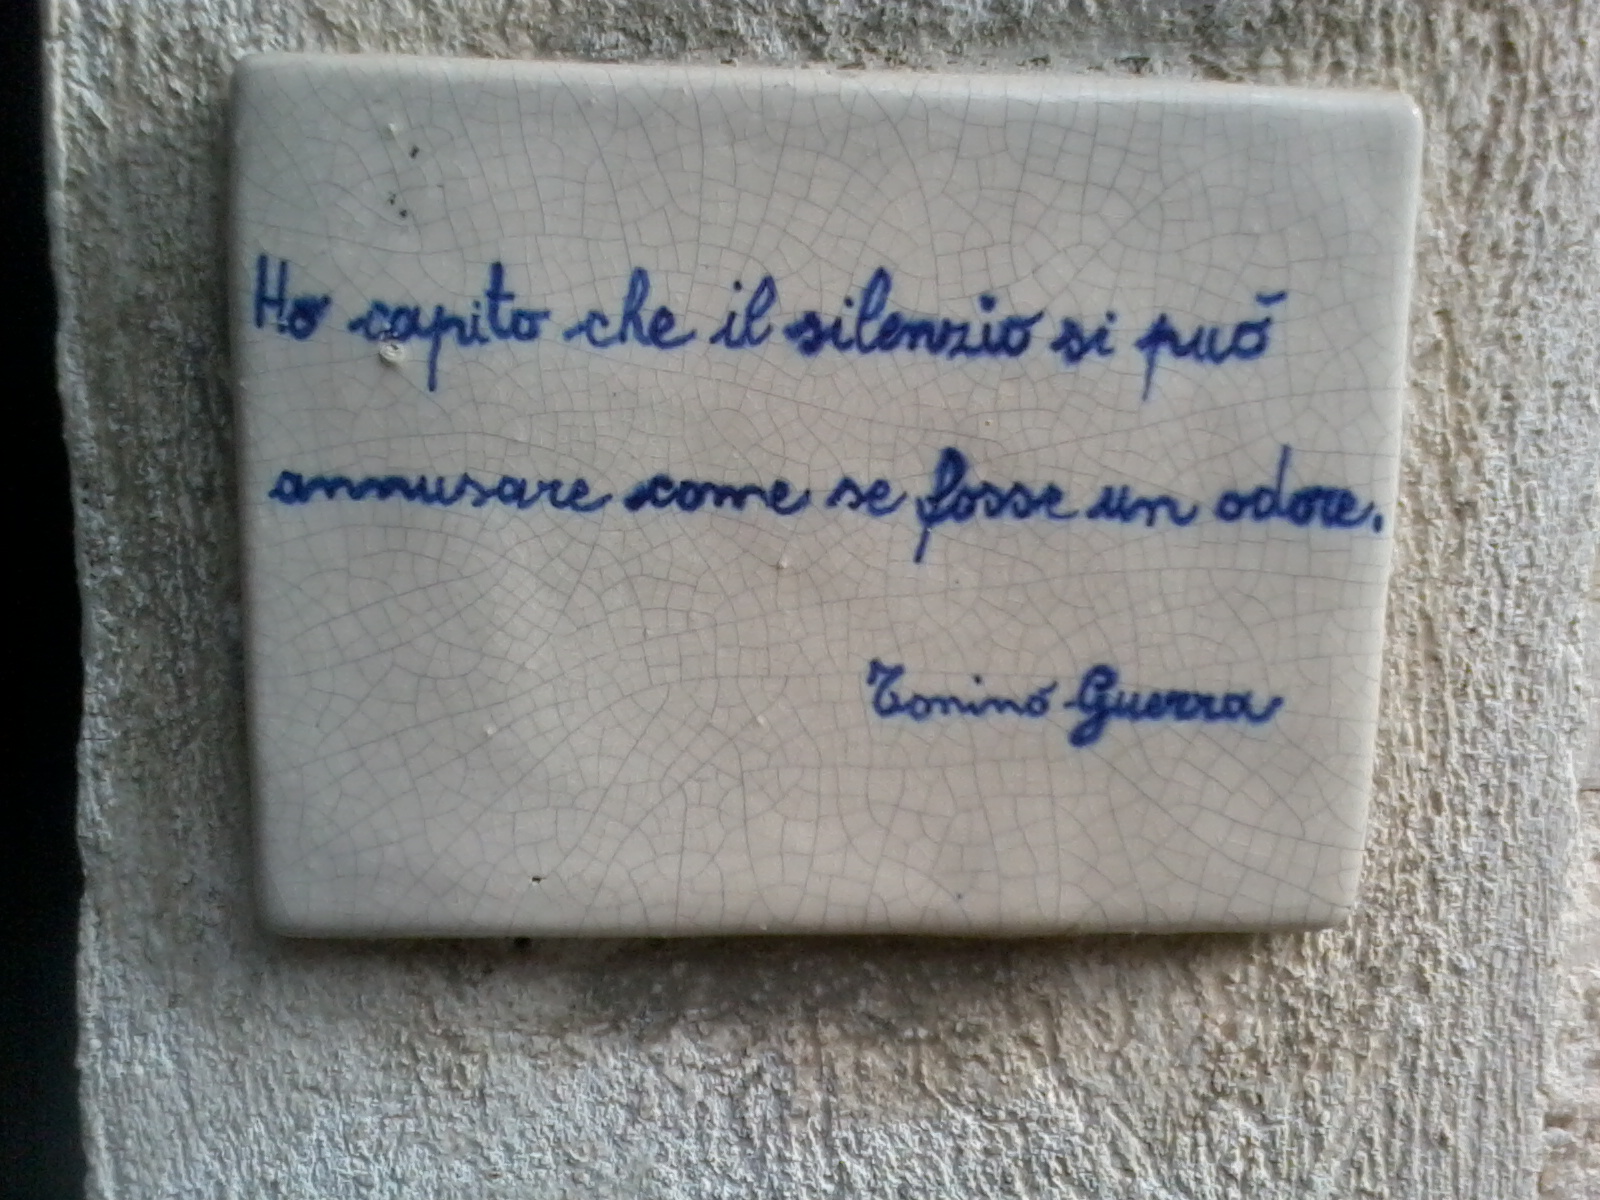 Ho capito che il silenzio si può
annusare come se fosse un odore.
Tonino Guerra